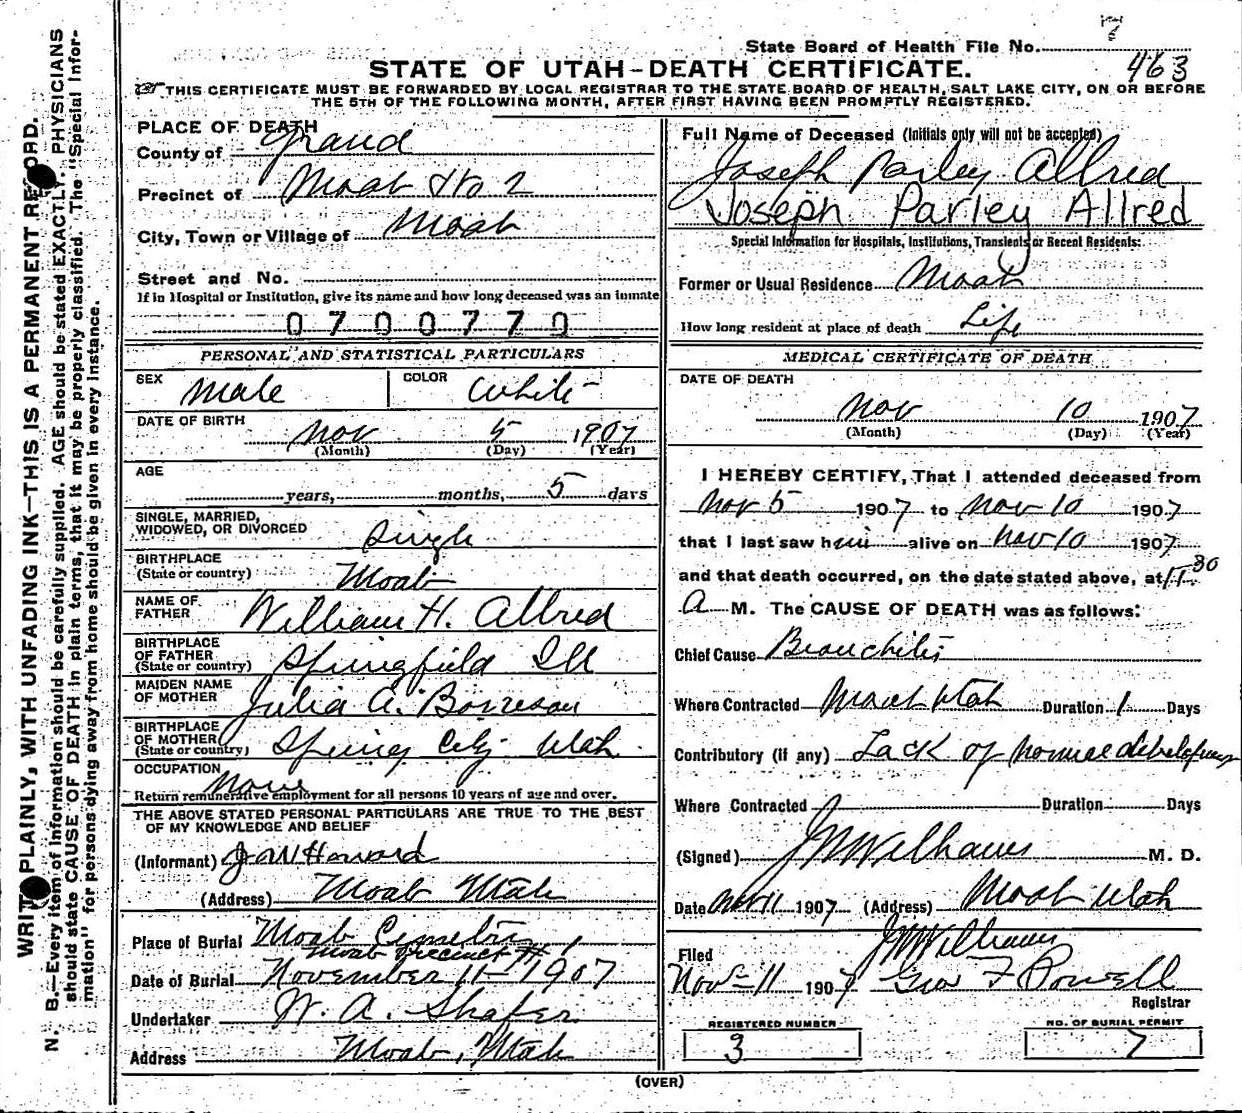 State Board of Health File No.
463
STATE OF UTAH–DEATH CERTIFICATE.
THIS CERTIFICATE MUST BE FORWARDED BY LOCAL REGISTRAR TO THE STATE BOARD OF HEALTH, SALT LAKE CITY, ON OR BEFORE
THE 5TH OF THE FOLLOWING MONTH, AFTER FIRST HAVING BEEN PROMPTLY REGISTERED.
WRITE PLAINLY, WITH UNFADING INK—THIS IS A PERMANENT RECORD.
N. B.—Every item of Information should be carefully supplied. AGE should be stated EXACTLY. PHYSICIANS
should state CAUSE OF DEATH in plain terms, that it may be properly classified. The "Special Infor-
mation" for persons dying away from home should be given in every instance.
PLACE OF DEATH
County of Grand
Precinct of Moab No 2
City, Town or Village of Moab
Street and No.
If in Hospital or Institution, give its name and how long deceased was an inmate
0700770
PERSONAL AND STATISTICAL PARTICULARS
SEX Male COLOR White
DATE OF BIRTH
Nov 5 1907
(Month) (Day) (Year)
AGE
years, months, 5 days
SINGLE, MARRIED,
WIDOWED, OR DIVORCED Single
BIRTHPLACE
(State or country) Moab
NAME OF
FATHER William H. Allred
BIRTHPLACE
OF FATHER
(State or country) Springfield Ill
MAIDEN NAME
OF MOTHER Julia A. Borreson
BIRTHPLACE
OF MOTHER
(State or country) Spring City Utah
OCCUPATION None
Return remunerative employment for all persons 10 years of age and over.
THE ABOVE STATED PERSONAL PARTICULARS ARE TRUE TO THE BEST
OF MY KNOWLEDGE AND BELIEF
(Informant) J W Howard
(Address) Moab Utah
Place of Burial Moab Cemetery
Moab Precinct # 1
Date of Burial November 11- 1907
Undertaker W. A. Shafer
Address Moab, Utah
Full Name of Deceased (Initials only will not be accepted)
Joseph Parley Allred
Joseph Parley Allred
Special Information for Hospitals, Institutions, Transients or Recent Residents:
Former or Usual Residence Moab
How long resident at place of death Life
MEDICAL CERTIFICATE OF DEATH
DATE OF DEATH
Nov 10 1907
(Month) (Day) (Year)
I HEREBY CERTIFY, That I attended deceased from
Nov 5 1907 to Nov 10 1907
that I last saw him alive on Nov 10 1907
and that death occurred, on the date stated above, at 11 30
A M. The CAUSE OF DEATH was as follows:
Chief Cause Bronchitis
Where Contracted Moab Utah Duration 1 Days
Contributory (if any) Lack of normal development
Where Contracted Duration Days
(Signed) J W Williams M. D.
Date Nov 11 1907 (Address) Moab Utah
J W Williams
Filed
Nov-11 1907 Geo F Powell
Registrar
REGISTERED NUMBER
3
NO. OF BURIAL PERMIT
7
(OVER)